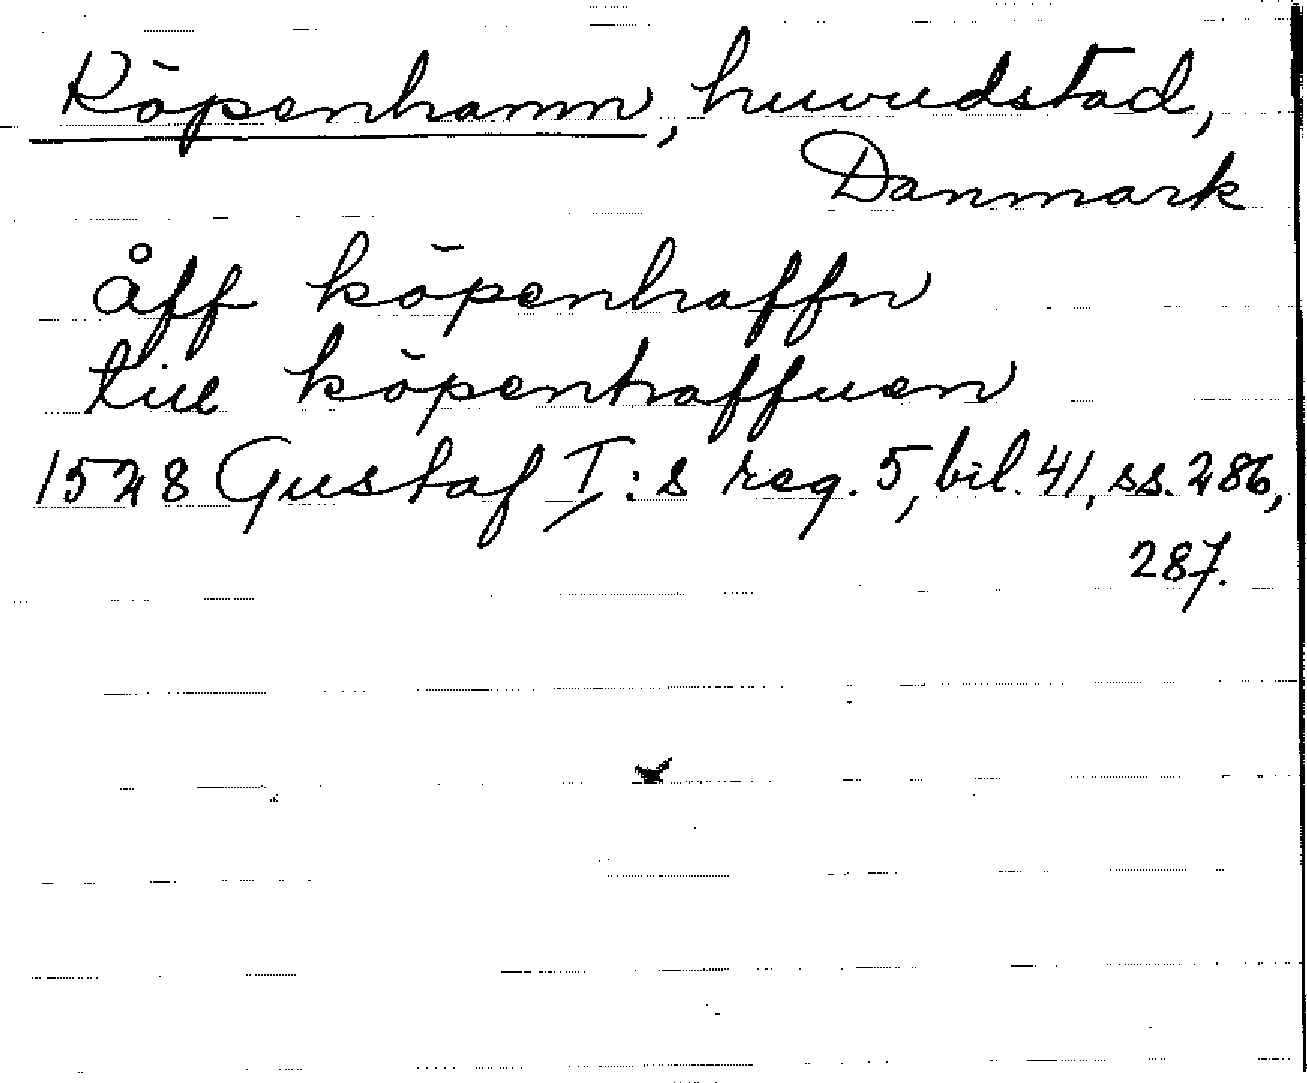 Köpenhamn, huvudstad,
Danmark
åff köpenhaffn
till köpenhaffuen
1528 Gustaf I:s reg. 5, bil. 41, ss. 286,
287.